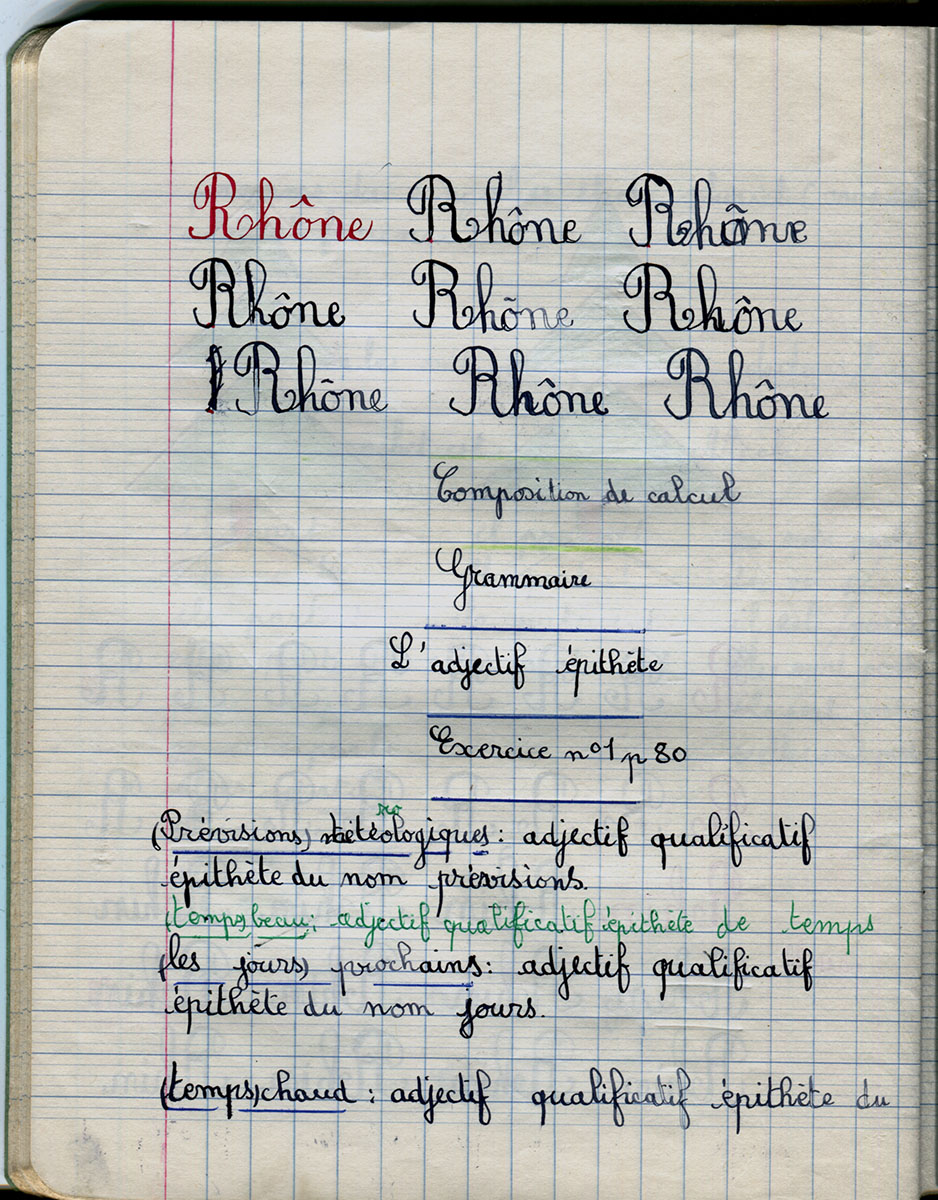 Rhône Rhône Rhône
Rhône Rhône Rhône
Rhône Rhône Rhône
Composition de calcul
Grammaire
L'adjectif épithète
Exercice n°1 p 80
ro
(Prévisions) météologiques : adjectif qualificatif
épithète du nom prévisions.
(temps) beau : adjectif qualificatif épithète de temps
(les jours) prochains : adjectif qualificatif
épithète du nom jours.
(temps) chaud : adjectif qualificatif épithète du